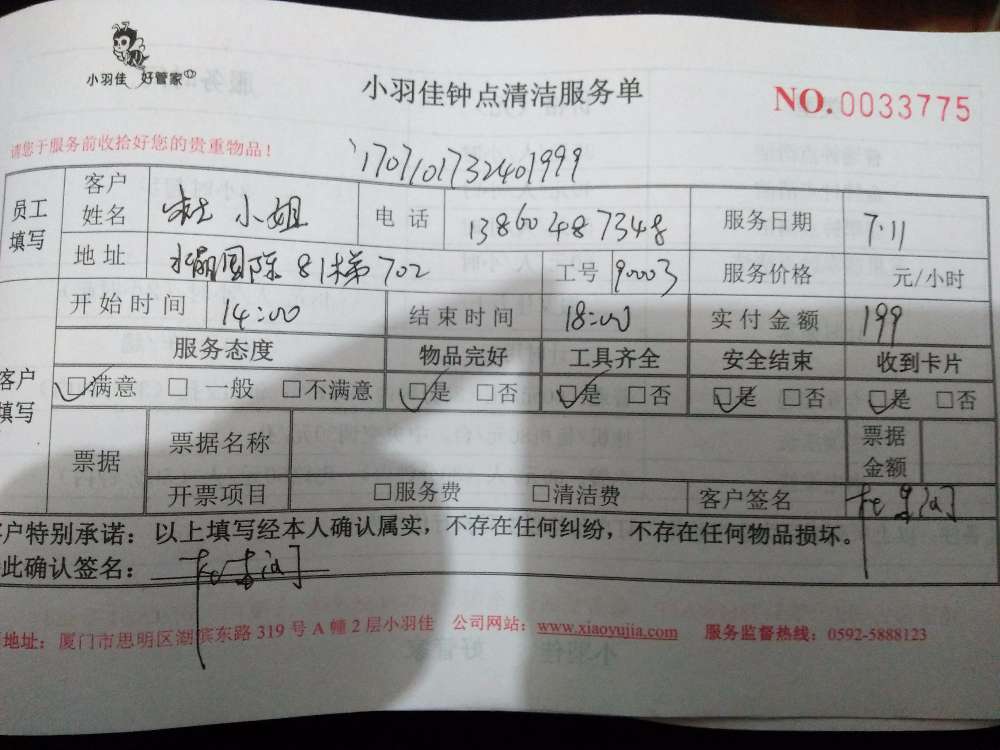 小羽佳 好管家
小羽佳钟点清洁服务单
NO.0033775
请您于服务前收拾好您的贵重物品！
1707101732401999
员工填写 客户姓名 杜小姐 电话 13860487348 服务日期 7.11
地址 水晶国际81梯702 工号 90003 服务价格 元/小时
客户填写 开始时间 14:00 结束时间 18:00 实付金额 199
服务态度 物品完好 工具齐全 安全结束 收到卡片
☑满意 □一般 □不满意 ☑是 □否 ☑是 □否 ☑是 □否 ☑是 □否
票据 票据名称 票据金额
开票项目 □服务费 □清洁费 客户签名
客户特别承诺：以上填写经本人确认属实，不存在任何纠纷，不存在任何物品损坏。
此确认签名：
地址：厦门市思明区湖滨东路319号A幢2层小羽佳 公司网站：www.xiaoyujia.com 服务监督热线：0592-5888123